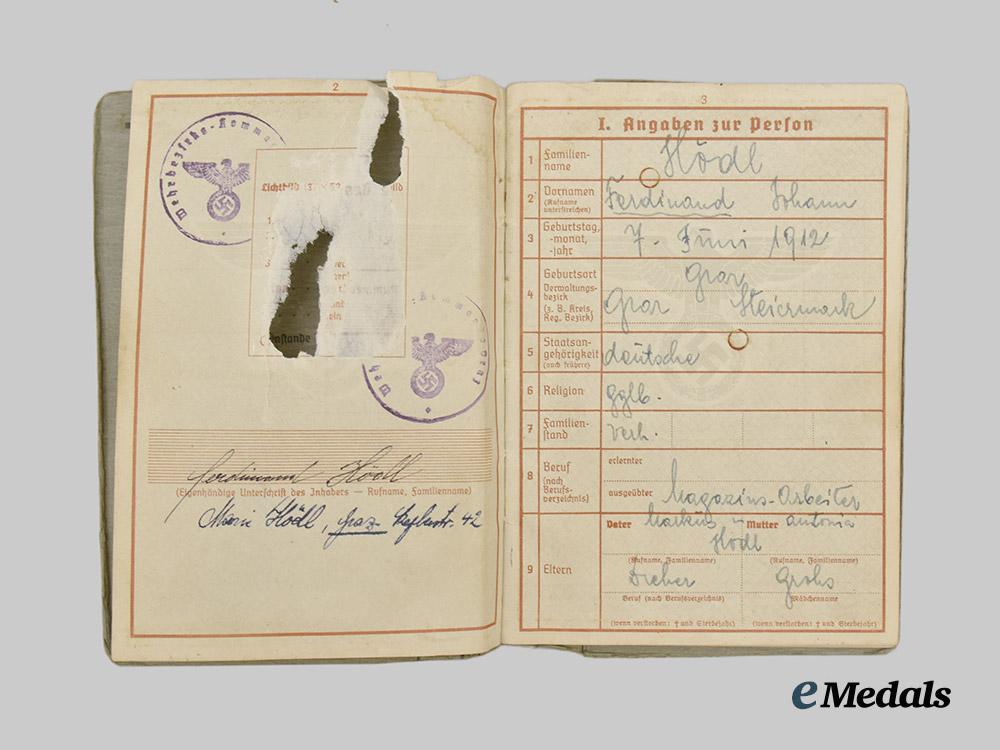 2
Wehrbezirks-Komman
Lichtbild
nstande
Ferdinand Hödl
(Eigenhändige Unterschrift des Inhabers — Rufname, Familienname)
Marie Hödl, Graz 42
3
I. Angaben zur Person
1 Familien-
name
Hödl
2 Vornamen
(Rufname
unterstreichen)
Ferdinand Johann
3 Geburtstag,
-monat,
-jahr
7. Juni 1912
4 Geburtsort
Verwaltungs-
bezirk
(z. B. Kreis,
Reg. Bezirk)
Graz
Graz Steiermark
5 Staatsan-
gehörigkeit
(auch frühere)
deutsche
6 Religion
gglb.
7 Familien-
stand
verh.
8 Beruf
(nach
Berufs-
verzeichnis)
erlernter
ausgeübter Magazins-Arbeiter
9 Eltern
Vater Markus Mutter Antonia
Hödl
(Rufname, Familienname) (Rufname, Familienname)
Dreher Grohs
Beruf (nach Berufsverzeichnis) Mädchenname
(wenn verstorben: † und Sterbejahr) (wenn verstorben: † und Sterbejahr)
eMedals